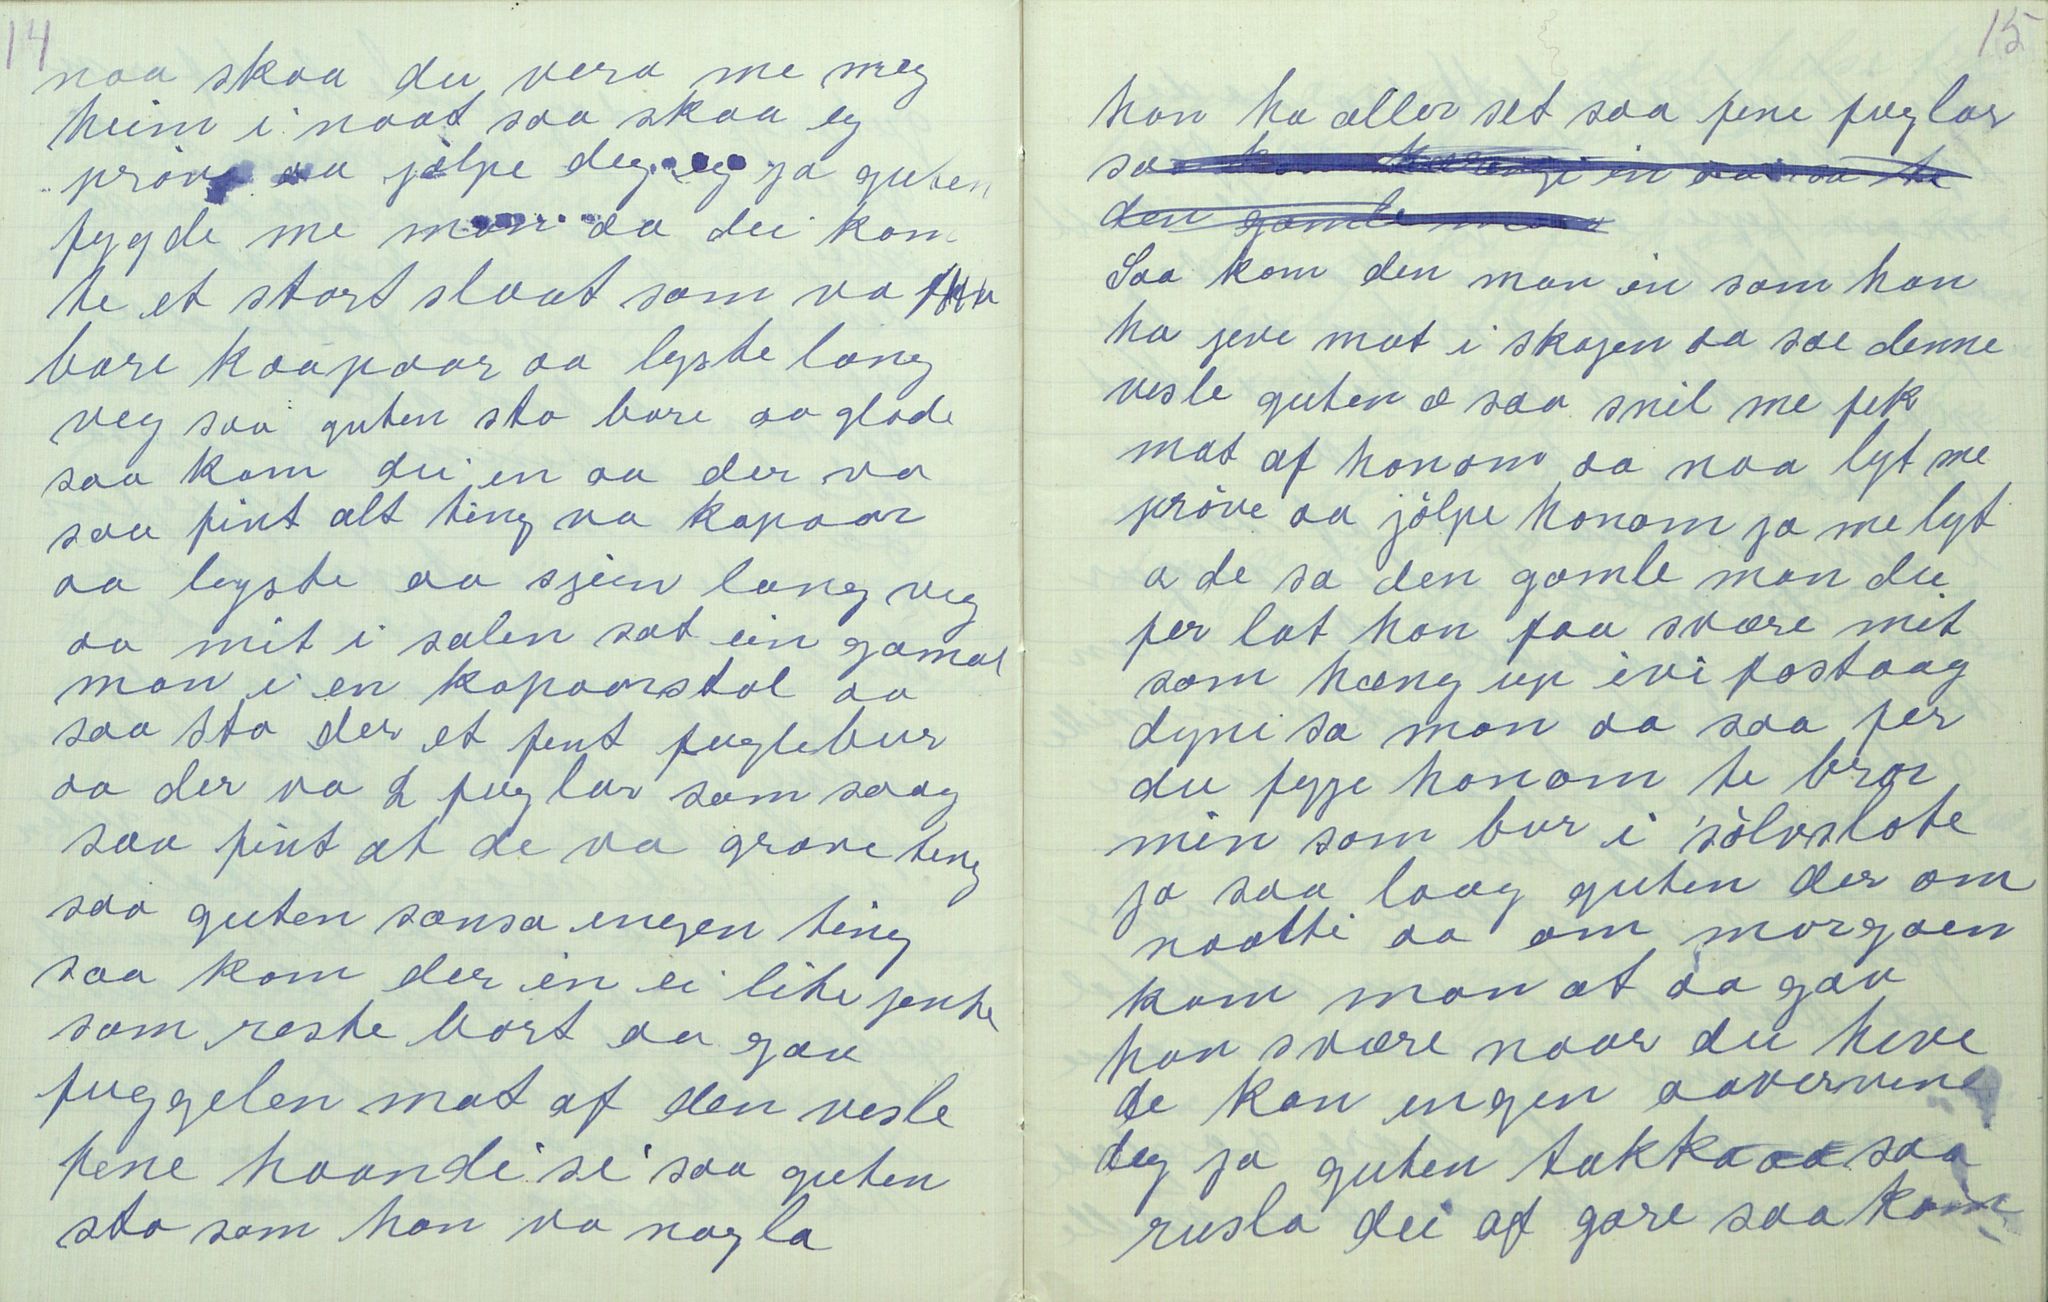 14
naa skaa du vera me meg
heim i naat saa skaa eg
pröve aa jelpe deg ja guten
fygde me man aa dei kom
te et stort slaat som va
bare kaapaar aa lyste lang
veg saa guten sto bare aa glode
saa kom dei en aa der va
saa fint alt ting va kapaar
aa lyste aa sjein lang veg
aa mit i salen sat ein gamal
man i en kapaarstol aa
saa sto der et fent fuglebur
aa der va 2 fuglar som saag
saa fint at de va grove ting
saa guten sansa ingen ting
saa kom der in ei lite jente
som reste bort aa gav
fuggelen mat af den vesle
fene haandi si saa guten
sto som han va nagla
15
han ha aller set saa fene fuglar
sa
den gamle man
Saa kom den man in som han
ha jeve mat i skogen aa sae denne
vesle guten æ saa snil me fek
mat af honom aa naa lyt me
pröve aa jölpe honom ja me lyt
a de sa den gamle man du
fer lat han faa svære mit
som hæng up ivi fostaag
dyni sa man aa saa fer
du fygje honom te bror
min som bur i sölvslote
ja saa laag guten der om
naatti aa om morgaen
kom man at aa gav
han svære naar du heve
de kan ingen aavervine
deg ja guten takka saa
rusla dei af gare saa kom